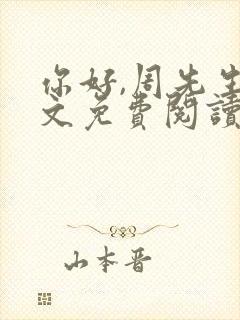 你好,周先生
文免费閱讀
山本晋